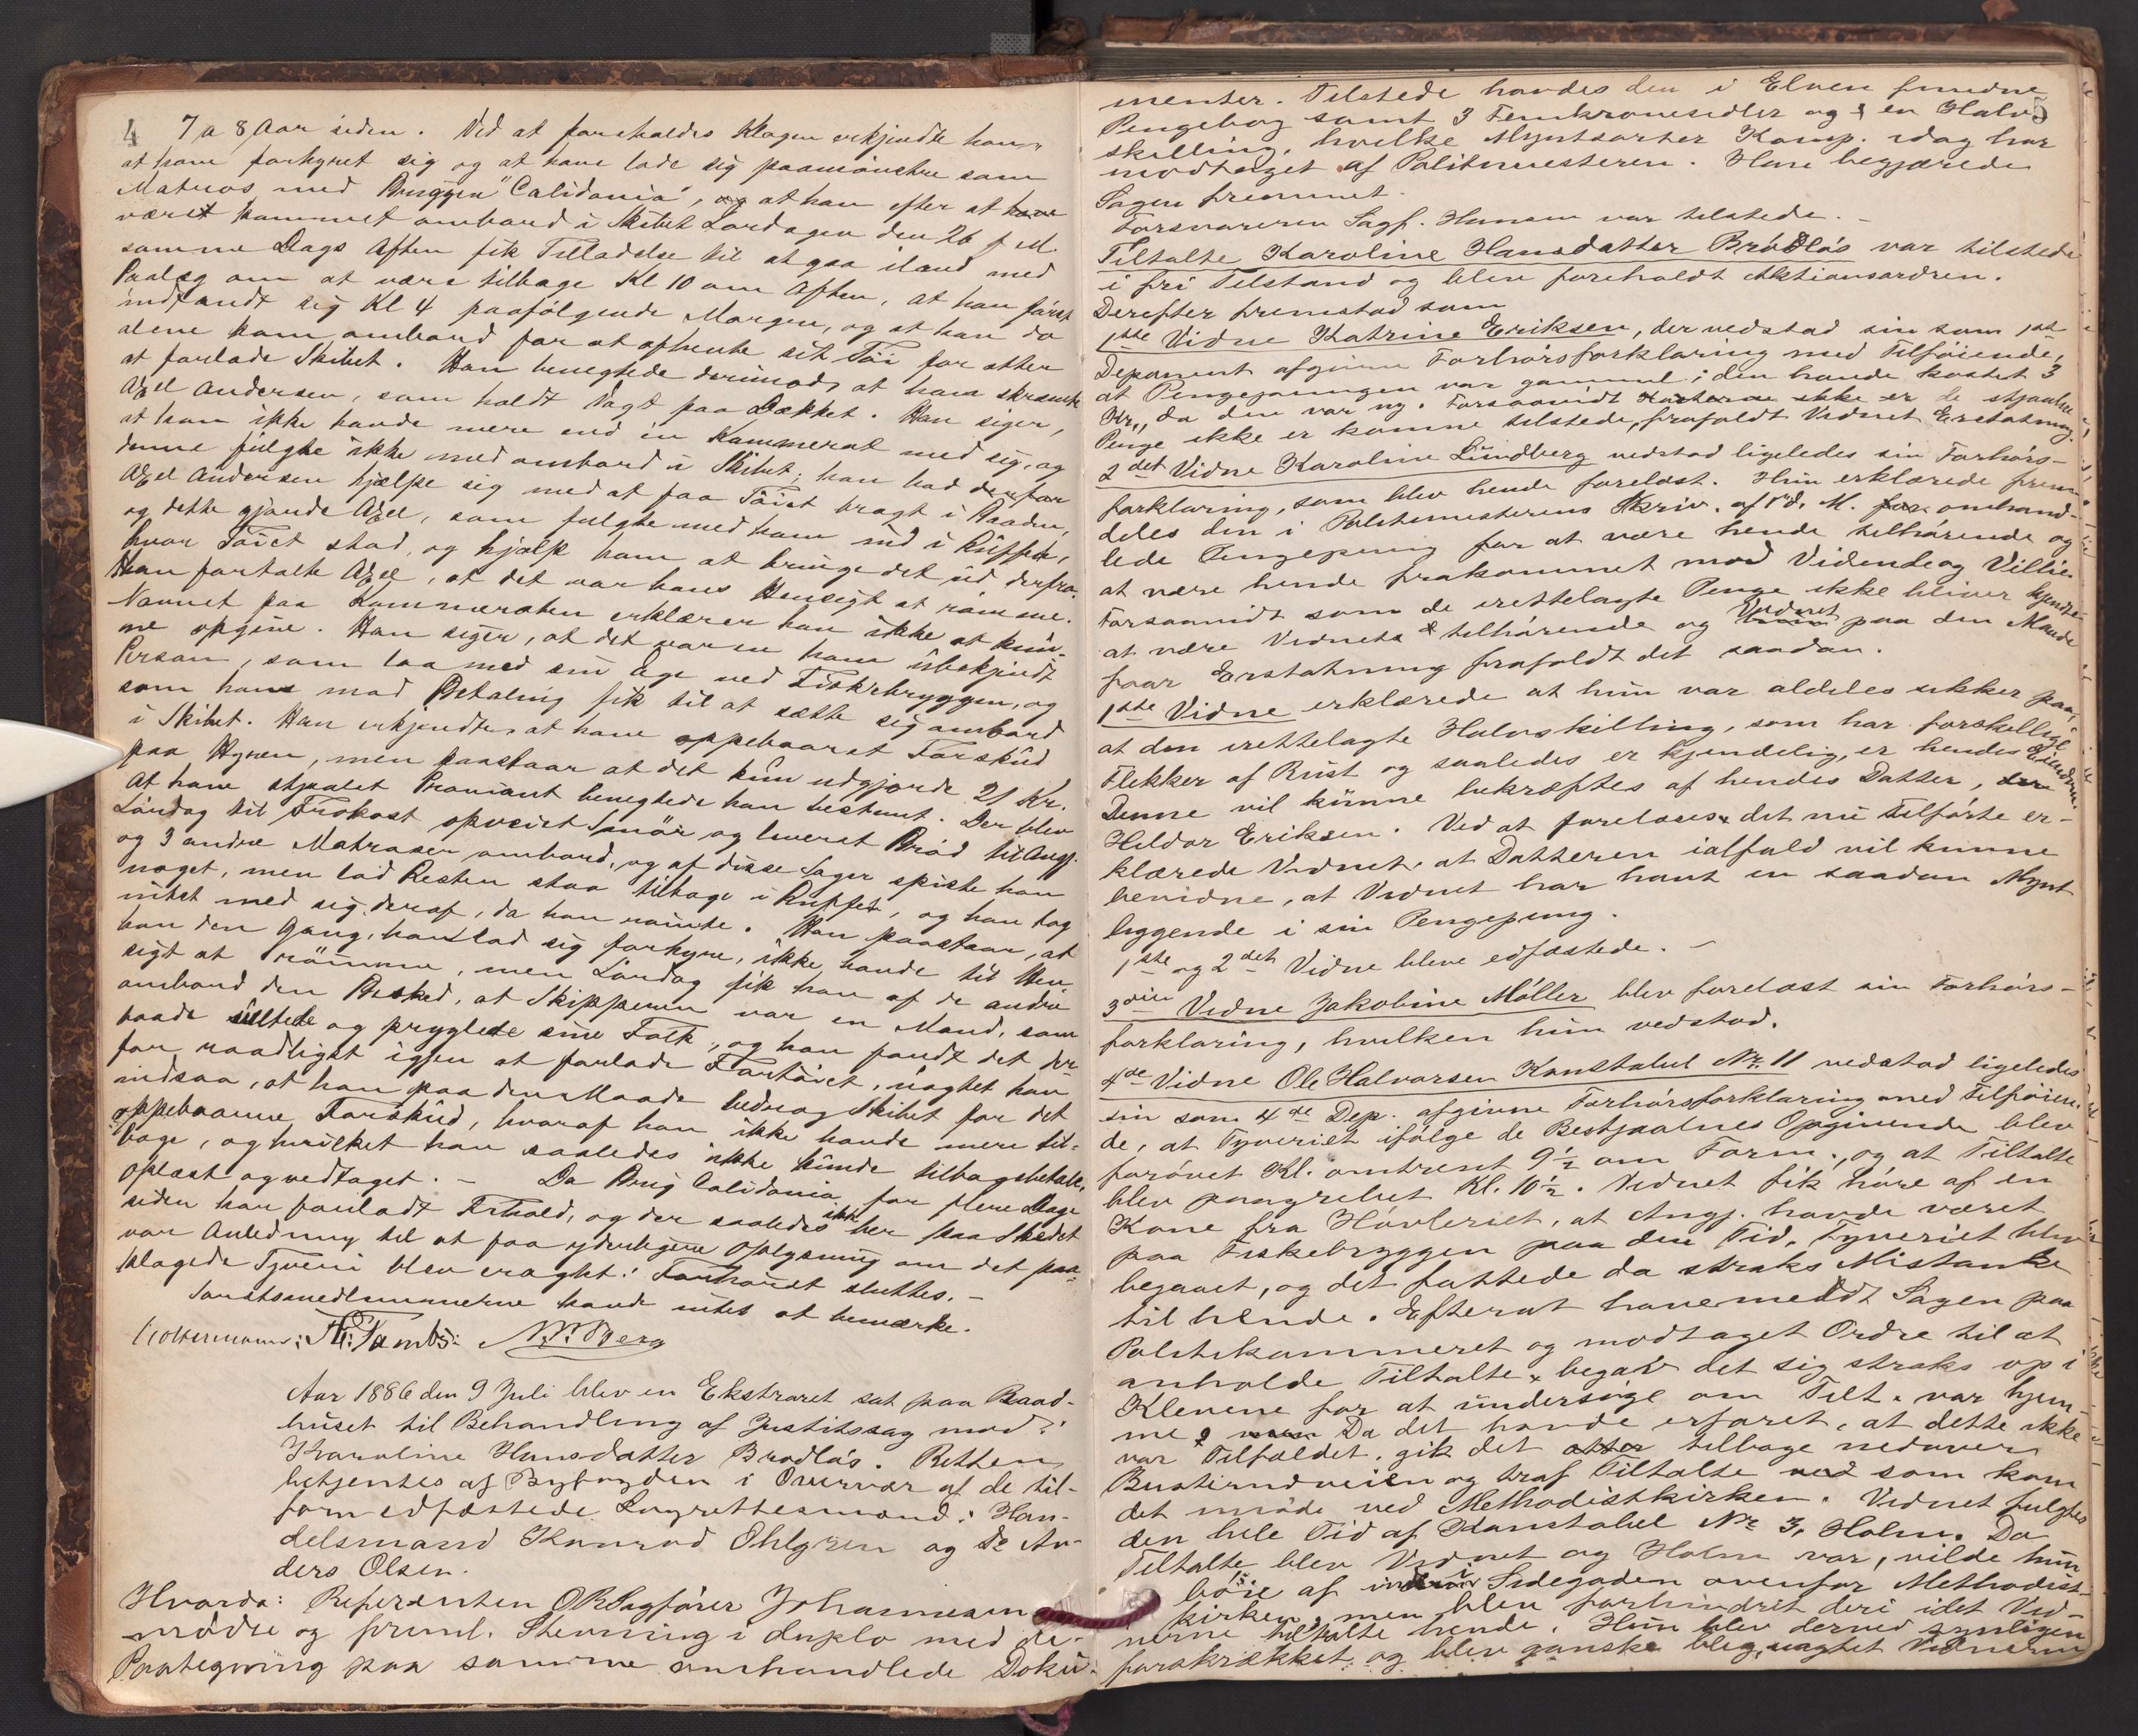 4
7 a 8 Aar siden. Ved at foreholdes Klagen erkjendte han,
at have forhyret sig og at have ladt sig paamønstre som
Matros med Briggen "Calidonia", og at han efter at have
været kommet ombord i Skibet Lørdagen den 26 f. M.
samme Dags Aften fik Tilladelse til at gaa iland med
Paalæg om at være tilbage Kl 10 om Aften, at han først
indfandt sig Kl 4 paafølgende Morgen, og at han da
alene kom ombord for at afhente sit Tøi for atter
at forlade Skibet. Han benegtede derimod, at have skræmt
Axel Andersen, som holdt Vagt paa Dækket. Han siger,
at han ikke havde mere end en Kammerat med sig, og
denne fulgte ikke med ombord i Skibet; han bad derfor
Axel Andersen hjælpe sig med at faa Tøiet bragt i Baaden,
og dette gjorde Axel, som fulgte med ham ind i Ruffen,
hvor Tøiet stod, og hjalp ham at bringe det ud derfra.
Han fortalte Axel, at det var hans Hensigt at rømme.
Navnet paa Kammeraten erklærer han ikke at kun-
ne opgive. Han siger, at det var en ham ubekjendt
Person, som laa med sin Ege ved Fiskebryggen, og
som han mod Betaling fik til at sætte sig ombord
i Skibet. Han erkjendte, at have oppebaaret Forskud
paa Hyren, men paastaar at det kun udgjorde 21 Kr.
At have stjaalet Proviant benegtede han bestemt. Der blev
Lørdag til Frokost opveiet Smør og leveret Brød til Angj.
og 3 andre Matroser ombord, og af disse Sager spiste han
noget, men lod Resten staa tilbage i Ruffen, og han tog
intet med sig deraf, da han rømte. Han paastaar, at
han den Gang, han lod sig forhyre, ikke havde til Hen-
sigt at rømme, men Lørdag fik han af de andre
ombord den Besked, at Skipperen var en Mand, som
baade sultede og pryglede sine Folk, og han fandt det der-
for raadligst igjen at forlade Fartøiet, uagtet han
indsaa, at han paa den Maade bedrog Skibet for det
oppebaarne Forskud, hvoraf han ikke havde mere til-
bage, og hvilket han saaledes ikke kunde tilbagebetale.
Oplæst og vedtaget. – Da Brig Calidonia for flere Dage
siden har forladt Frhald, og der saaledes ikke her paa Stedet
var Anledning til at faa yderligere Oplysning om det paa-
klagede Tyveri blev eragtet: Forhøret sluttes. –
Forstsmedlemmerne havde intet at bemærke.
Th. Tambs: N. N. Berg
Aar 1886 den 9 Juli blev en Ekstraret sat paa Raad-
huset til Behandling af Justitssag mod:
Karoline Hansdatter Brødløs. Retten
betjentes af Byfogden i Overvær af de til-
forn edfæstede Lagrettesmænd: Han-
delsmand Konrad Ohlgren og Do An-
ders Olsen.
Hvorda: Referenten O.R.Sagfører Johannesen
mødte og freml. Stevning i duplo med de i
Paategning paa samme omhandlede Doku-
5
menter. Tilstede havdes den i Elven fundne
Pengebog samt 3 Femkronesedler og en Halv-
skilling, hvilke Myntsorter Komp. idag har
modtaget af Politimesteren. Han begjærede
Sagen fremmet.
Forsvareren Sagf. Hansen var tilstede. –
Tiltalte Karoline Hansdatter Brødløs var tilstede
i fri Tilstand og blev foreholdt Aktionsordren.
Derefter fremstod som
1ste Vidne Katrine Eriksen, der vedstod sin som 1ste
Deponent afgivne Forhørsforklaring med Tilføiende,
at Pengepungen var gammel; den havde kostet 3
Kr., da den var ny. Forsaavidt ikke er de stjaalne
Penge ikke er komne tilstede, frafaldt Vidnet Erstatning.
2det Vidne Karoline Lundberg vedstod ligeledes sin Forhørs-
forklaring, som blev hende forelæst. Hun erklærede frem-
deles den i Politimesterens Skriv. af 1 d. M. omhand-
lede Pengepung for at være hende tilhørende og
at være hende frakommet mod Vidende og Villie.
Forsaavidt som de irettelagte Penge ikke bliver kjendte
at være Vidnets tilhørende og Vidnet paa den Maade
faar Erstatning frafaldt det saadan.
1ste Vidne erklærede at hun var aldeles sikker paa,
at den irettelagte Halvskilling, som har forskellige
Flekker af Rust og saaledes er kjendelig, er hendes Eiendom.
Denne vil kunne bekræftes af hendes Datter,
Hildor Eriksen. Ved at forelæses det nu Tilførte er-
klærede Vidnet, at Datteren ialfald vil kunne
bevidne, at Vidnet har havt en saadan Mynt
liggende i sin Pengepung.
1ste og 2det Vidne bleve edfæstede. –
3die Vidne Jakobine Møller blev forelæst sin Forhørs-
forklaring, hvilken hun vedstod.
4de Vidne Ole Halvorsen Konstabel No. 11 vedstod ligeledes
sin som 4de Dep. afgivne Forhørsforklaring med Tilføien-
de, at Tyveriet ifølge de Bestjaalnes Opgivende blev
forøvet Kl. omtrent 9½ om Form., og at Tiltalte
blev paagrebet Kl. 10½. Vidnet fik høre af en
Kone fra Høvleriet, at Angj. havde været
paa Fiskebryggen paa den Tid, Tyveriet blev
begaaet, og det fattede da straks Mistanke
til hende. Efterat have meldt Sagen paa
Politikammeret og modtaget Ordre til at
anholde Tiltalte, begav det sig straks op i
Klevene for at undersøge om Tilt. var hjem-
me. Da det havde erfaret, at dette ikke
var Tilfældet, gik det atter tilbage nedover
Busterudveien og traf Tiltalte som kom
det imøde ved Methodistkirken. Vidnet fulgtes
den hele Tid af Konstabel No 3, Holm. Da
Tiltalte blev Vidnet og Holm var, vilde hun
bøie af i Sidegaden ovenfor Methodist-
kirken, men blev forhindret deri idet Vid-
nerne tiltalte hende. Hun blev derved synligen
forskrækket og blev ganske bleg, uagtet Vidnerne